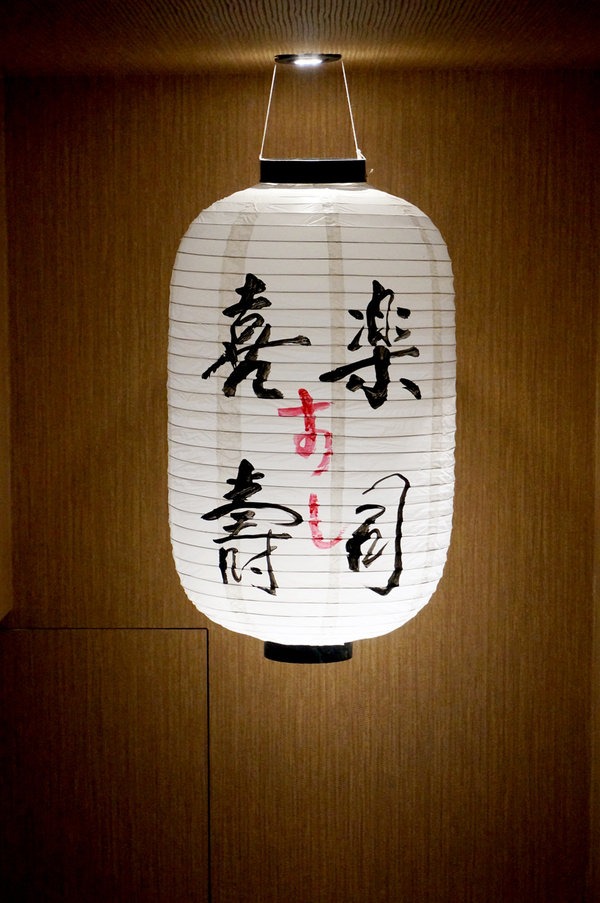 楽司
あし
喜壽